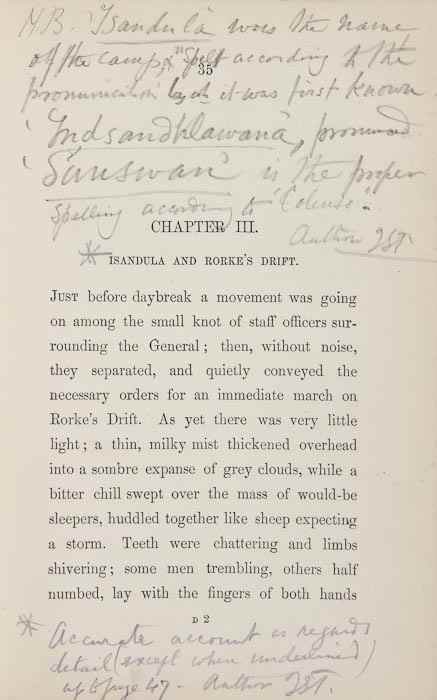 N.B. 'Isandula' was the name
of the camp, & spelt according to the
35
pronunciation by wh it was first known
'Indsandhlawana', pronounced
'Sanswan' is the proper
spelling according to 'Colenso'.
Author
CHAPTER III.
* ISANDULA AND RORKE'S DRIFT.
JUST before daybreak a movement was going
on among the small knot of staff officers sur-
rounding the General; then, without noise,
they separated, and quietly conveyed the
necessary orders for an immediate march on
Rorke's Drift. As yet there was very little
light; a thin, milky mist thickened overhead
into a sombre expanse of grey clouds, while a
bitter chill swept over the mass of would-be
sleepers, huddled together like sheep expecting
a storm. Teeth were chattering and limbs
shivering; some men trembling, others half
numbed, lay with the fingers of both hands
D 2
* Accurate account as regards
detail (except when underlined)
up to page 47 - Author